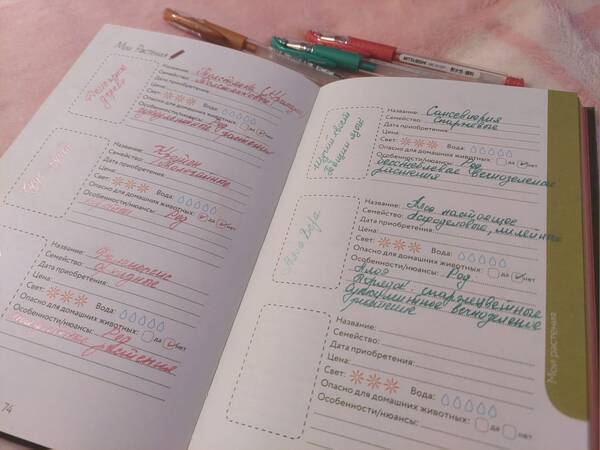 Мои Растения
Денежное
дерево
Название:
Семейство: Толстянковые
Дата приобретения:
Цена:
Свет: Вода:
Опасно для домашних животных: да нет
Особенности/нюансы: Род
суккулентных растений
Название:
Семейство:
Дата приобретения:
Цена:
Свет: Вода:
Опасно для домашних животных: да нет
Особенности/нюансы: Род
Название: Фаленопсис
Семейство: Орхидные
Дата приобретения:
Цена:
Свет: Вода:
Опасно для домашних животных: да нет
Особенности/нюансы: Род
растения
74
Название: Сансевиерия
Семейство: Спаржевые
Дата приобретения:
Цена:
Свет: Вода:
Опасно для домашних животных: да нет
Особенности/нюансы: Род
бесстеблевые вечнозеленые
растения
Название: Алоэ настоящее
Семейство: Асфоделовые, лилейные
Дата приобретения:
Цена:
Свет: Вода:
Опасно для домашних животных: да нет
Особенности/нюансы: Род
Алоэ
Порядок: спаржецветные
суккулентное вечнозеленое
растение
Название:
Семейство:
Дата приобретения:
Цена:
Свет: Вода:
Опасно для домашних животных: да нет
Особенности/нюансы:
Мои растения